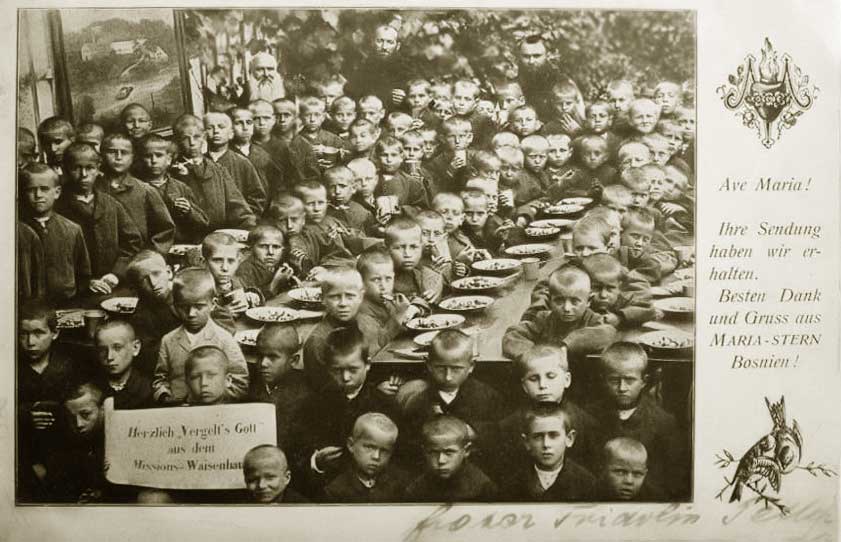 Herzlich „Vergelt's Gott
aus dem
Missions-Waisenhau
Ave Maria!
Ihre Sendung
haben wir er-
halten.
Besten Dank
und Gruss aus
MARIA-STERN
Bosnien!